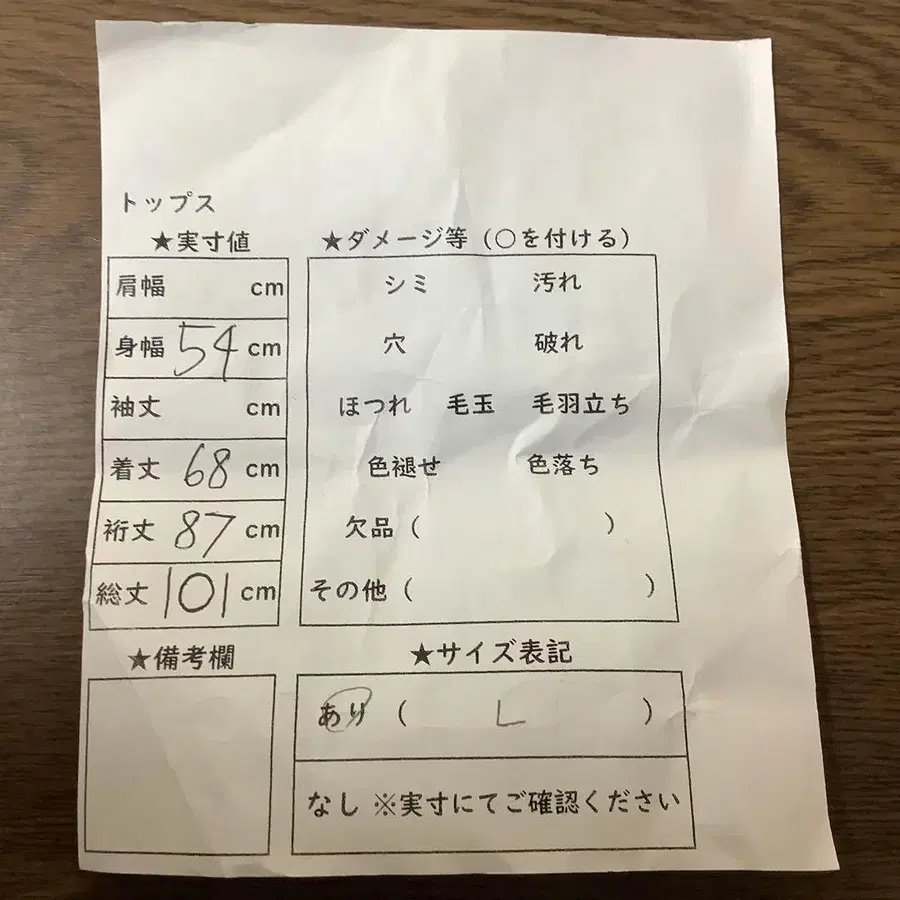 トップス
★実寸値
肩幅 cm
身幅 54 cm
袖丈 cm
着丈 68 cm
裄丈 87 cm
総丈 101 cm
★ダメージ等（○を付ける）
シミ 汚れ
穴 破れ
ほつれ 毛玉 毛羽立ち
色褪せ 色落ち
欠品（ ）
その他（ ）
★備考欄
★サイズ表記
あり（ L ）
なし ※実寸にてご確認ください